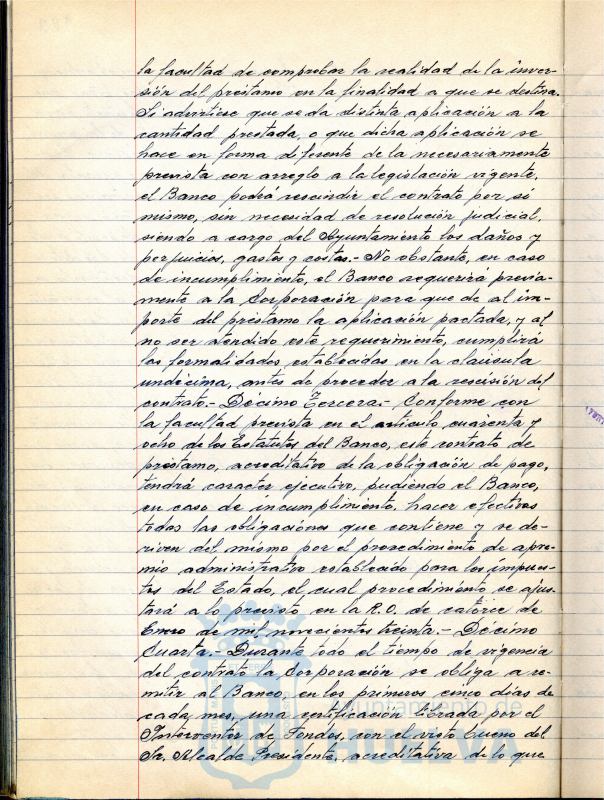 la facultad de comprobar la realidad de la inver-
sión del préstamo en la finalidad a que se destina.
Si advirtiese que se da distinta aplicación a la
cantidad prestada, o que dicha aplicación se
hace en forma diferente de la necesariamente
prevista con arreglo a la legislación vigente,
el Banco podrá rescindir el contrato por sí
mismo, sin necesidad de resolución judicial,
siendo a cargo del Ayuntamiento los daños y
perjuicios, gastos y costas.- No obstante, en caso
de incumplimiento, el Banco requerirá previa-
mente a la Corporación para que de al im-
porte del préstamo la aplicación pactada, y al
no ser atendido este requerimiento, cumplirá
las formalidades establecidas en la clausula
undécima, antes de proceder a la rescisión del
contrato.- Décimo Tercera.- Conforme con
la facultad prevista en el articulo cuarenta y
ocho de los Estatutos del Banco, este contrato de
préstamo, acreditativo de la obligación de pago,
tendrá caracter ejecutivo, pudiendo el Banco,
en caso de incumplimiento, hacer efectivas
todas las obligaciones que contiene y se de-
riven del mismo por el procedimiento de apre-
mio administrativo establecido para los impues-
tos del Estado, el cual procedimiento se ajus-
tará a lo previsto en la R.O. de catorce de
Enero de mil novecientos treinta.- Décimo
Cuarta.- Durante todo el tiempo de vigencia
del contrato la Corporación se obliga a re-
mitir al Banco, en los primeros cinco días de
cada mes, una certificación librada por el
Interventor de Fondos, con el visto bueno del
Sr. Alcalde Presidente, acreditativa de lo que
Ayuntamiento de
HUELVA